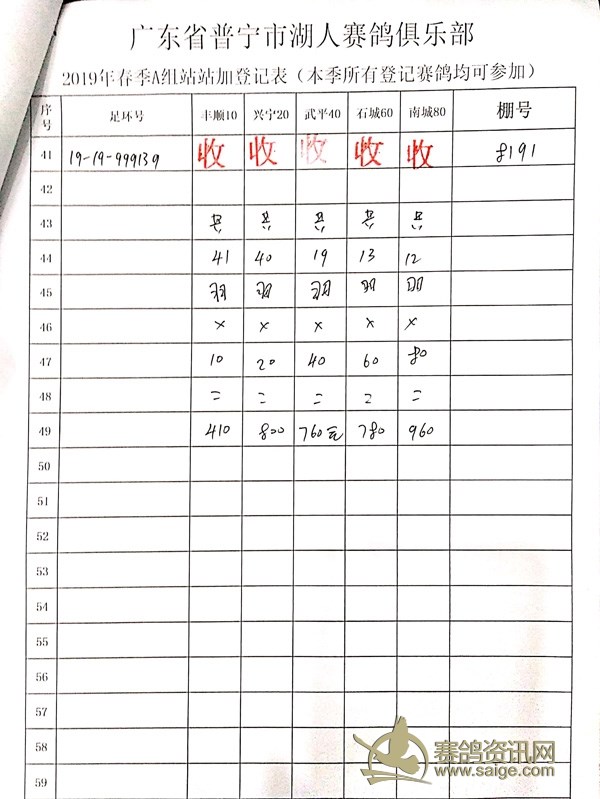 广东省普宁市湖人赛鸽俱乐部
2019年春季A组站站加登记表（本季所有登记赛鸽均可参加）
序号 足环号 丰顺10 兴宁20 武平40 石城60 南城80 棚号
41 19-19-999139 收 收 收 收 收 8191
42
43 共 共 共 共 共
44 41 40 19 13 12
45 羽 羽 羽 羽 羽
46 × × × × ×
47 10 20 40 60 80
48 = = = = =
49 410 800 760元 780 960
50
51
52
53
54
55
56
57
58
59
赛鸽资讯网
www.saige.com